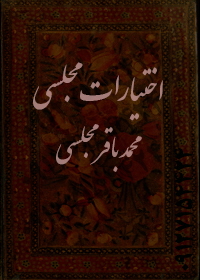 اختیارات مجلسی
محمد باقر مجلسی